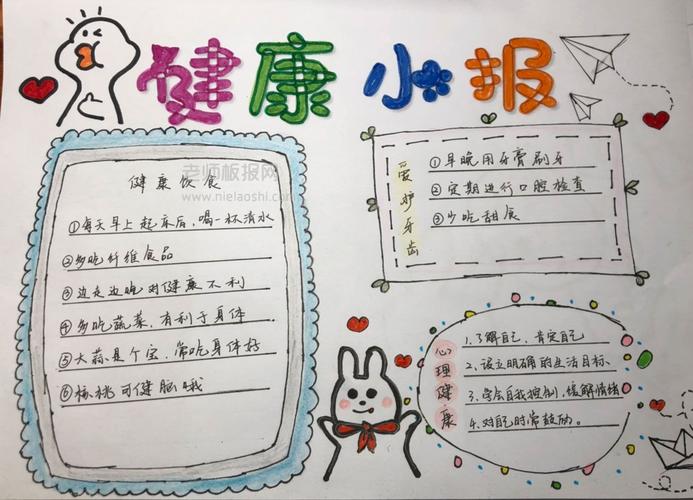 健康小报
老师板报网
www.nielaoshi.com
健康饮食
①每天早上起床后,喝一杯清水
②多吃纤维食品
③边走边吃对健康不利
④多吃蔬菜,有利于身体
⑤大蒜是个宝,常吃身体好
⑥核桃可健脑哦
爱护牙齿
①早晚用牙膏刷牙
②定期进行口腔检查
③少吃甜食
心理健康
1.了解自己,肯定自己
2、设立明确的生活目标
3、学会自我控制,缓解情绪
4、对自己时常鼓励。